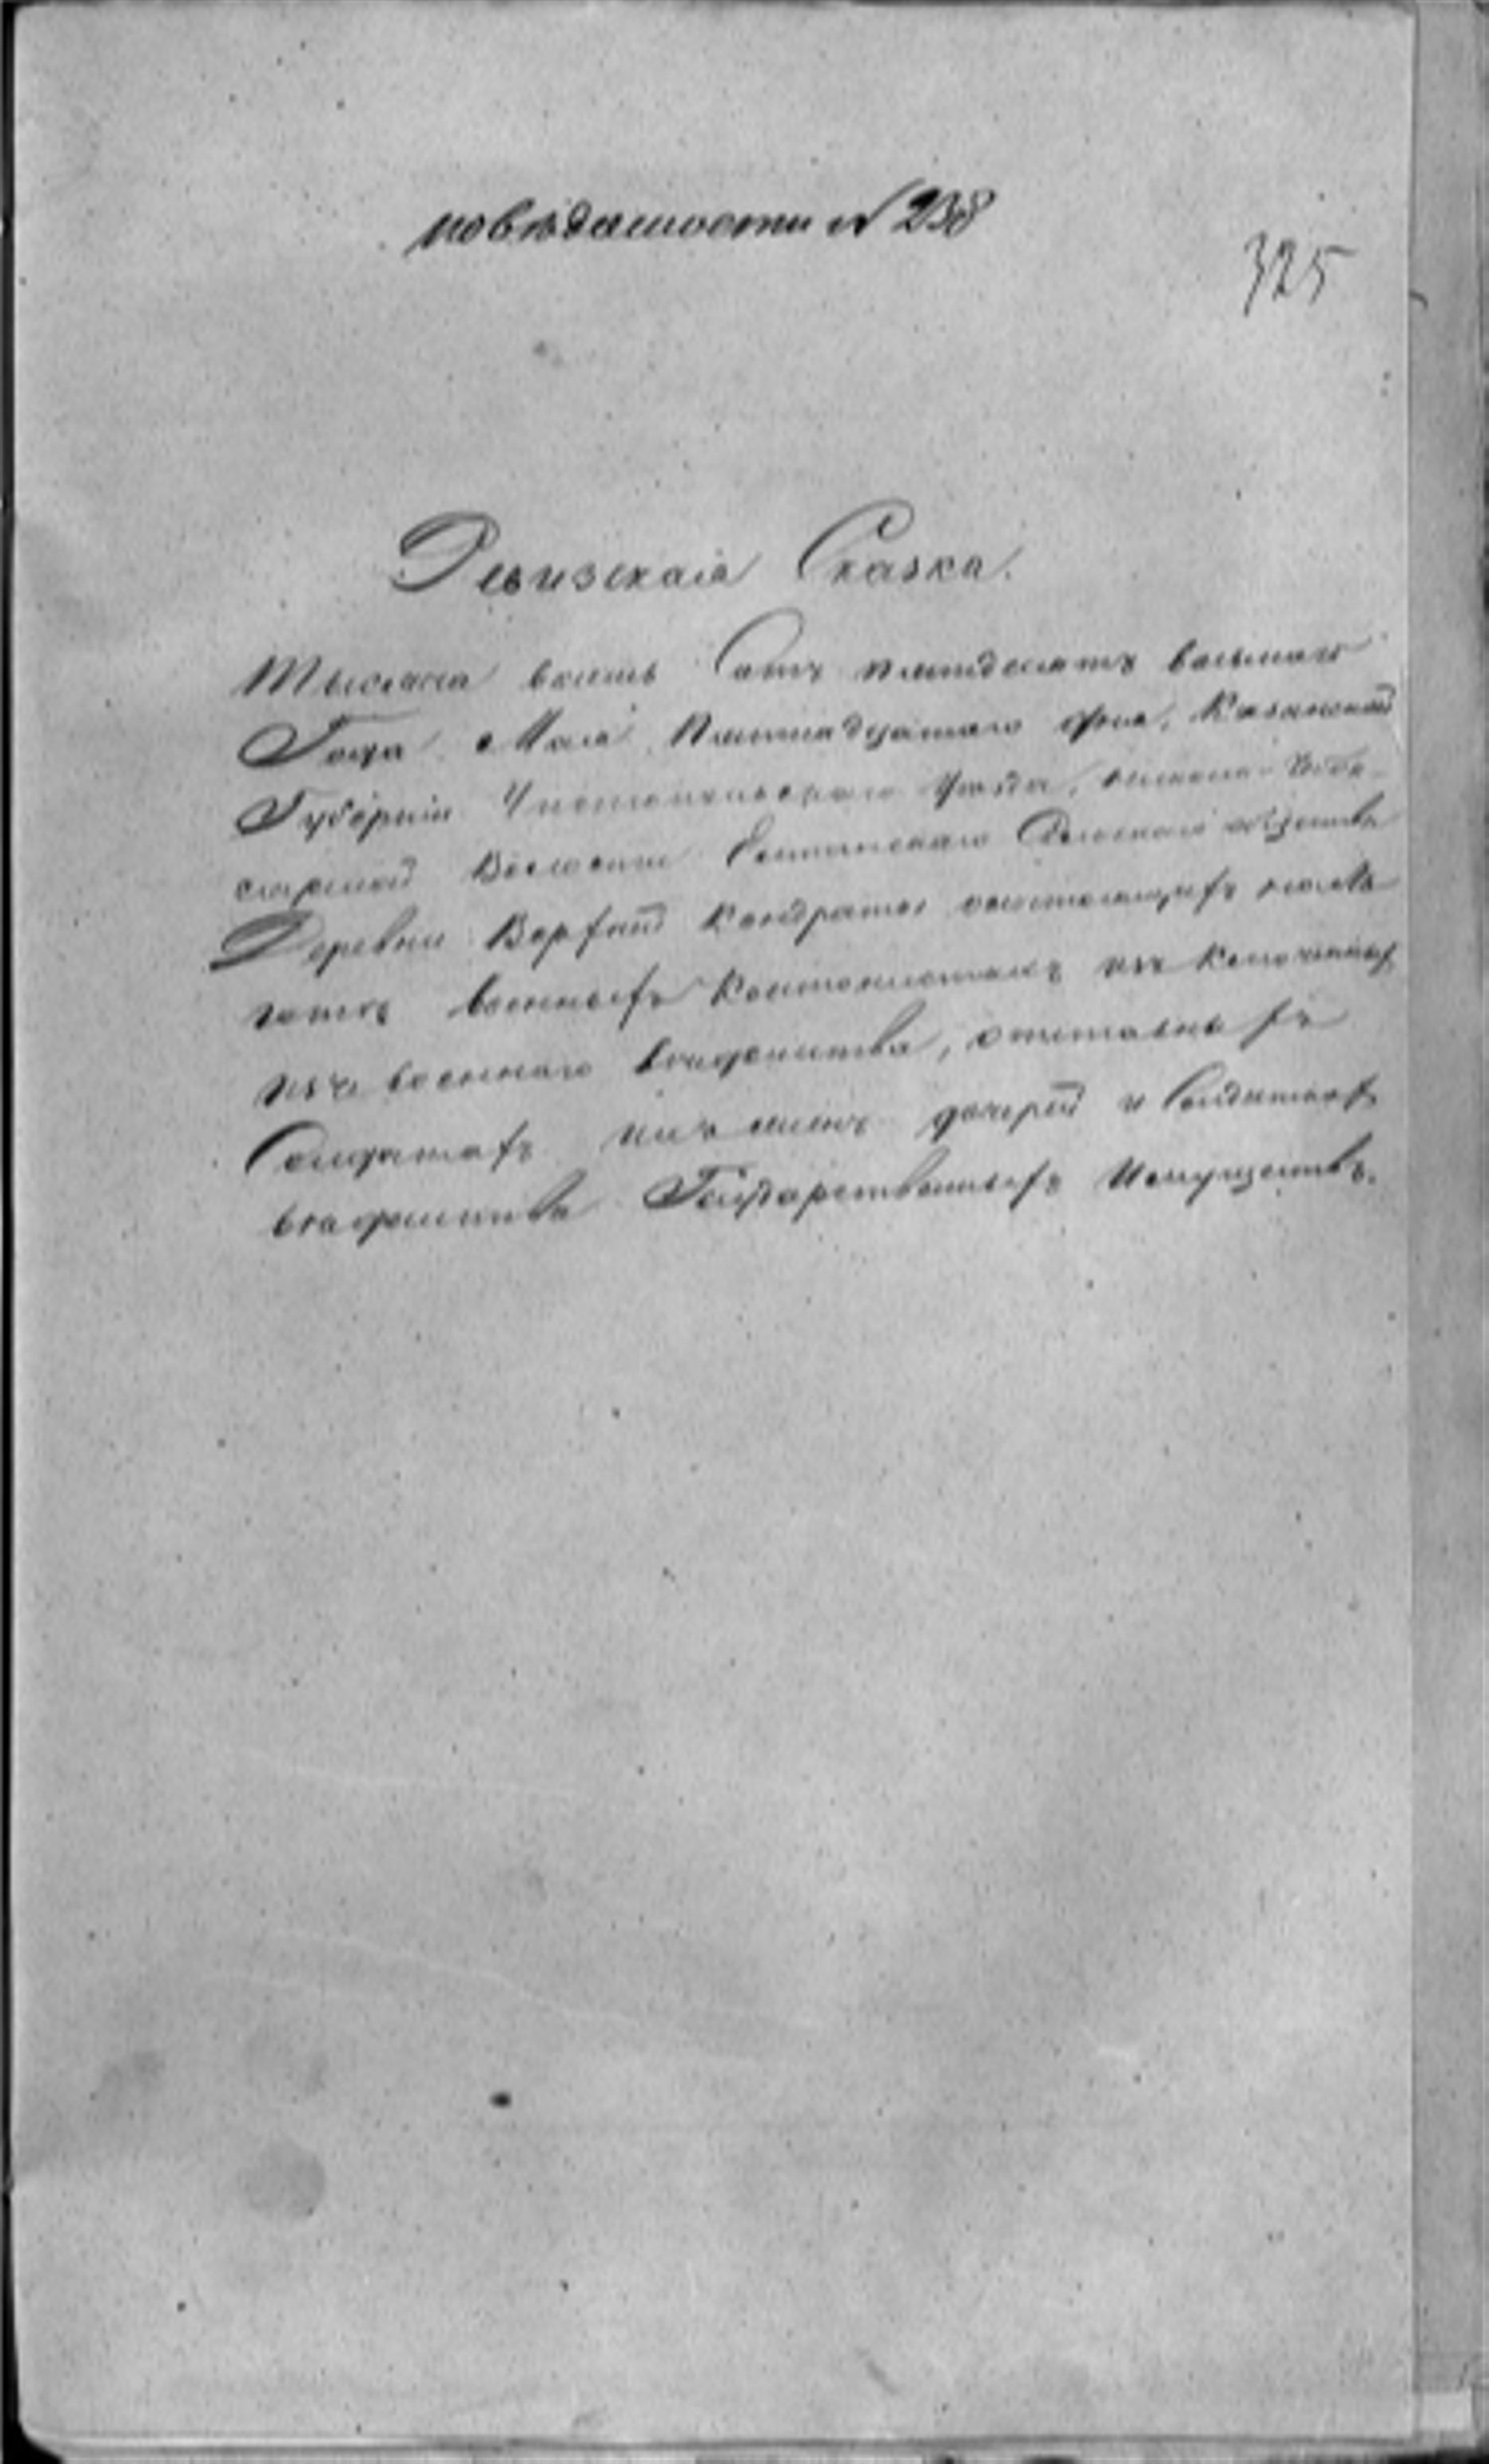 по вѣдомости № 238
325
Ревизская Сказка.
Тысяча восемь Сотъ пятьдесятъ восьмаго
Года Мая Пятнадцатаго дня, Казанской
Губерніи Чистопольскаго Уѣзда,
Волости Сельскаго общества
Деревни Верхней Кондраты состоящихъ
военныхъ Кантонистахъ изъ Исключенныхъ
изъ военнаго вѣдомства, отставныхъ
Солдатахъ женъ дочерей и Солдатокъ
вѣдомства Государственныхъ Имуществъ.